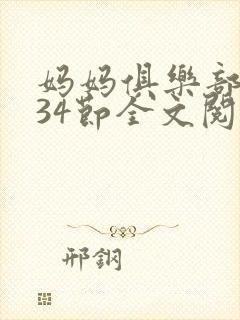 妈妈俱樂部
34節全文閱
邢鋼